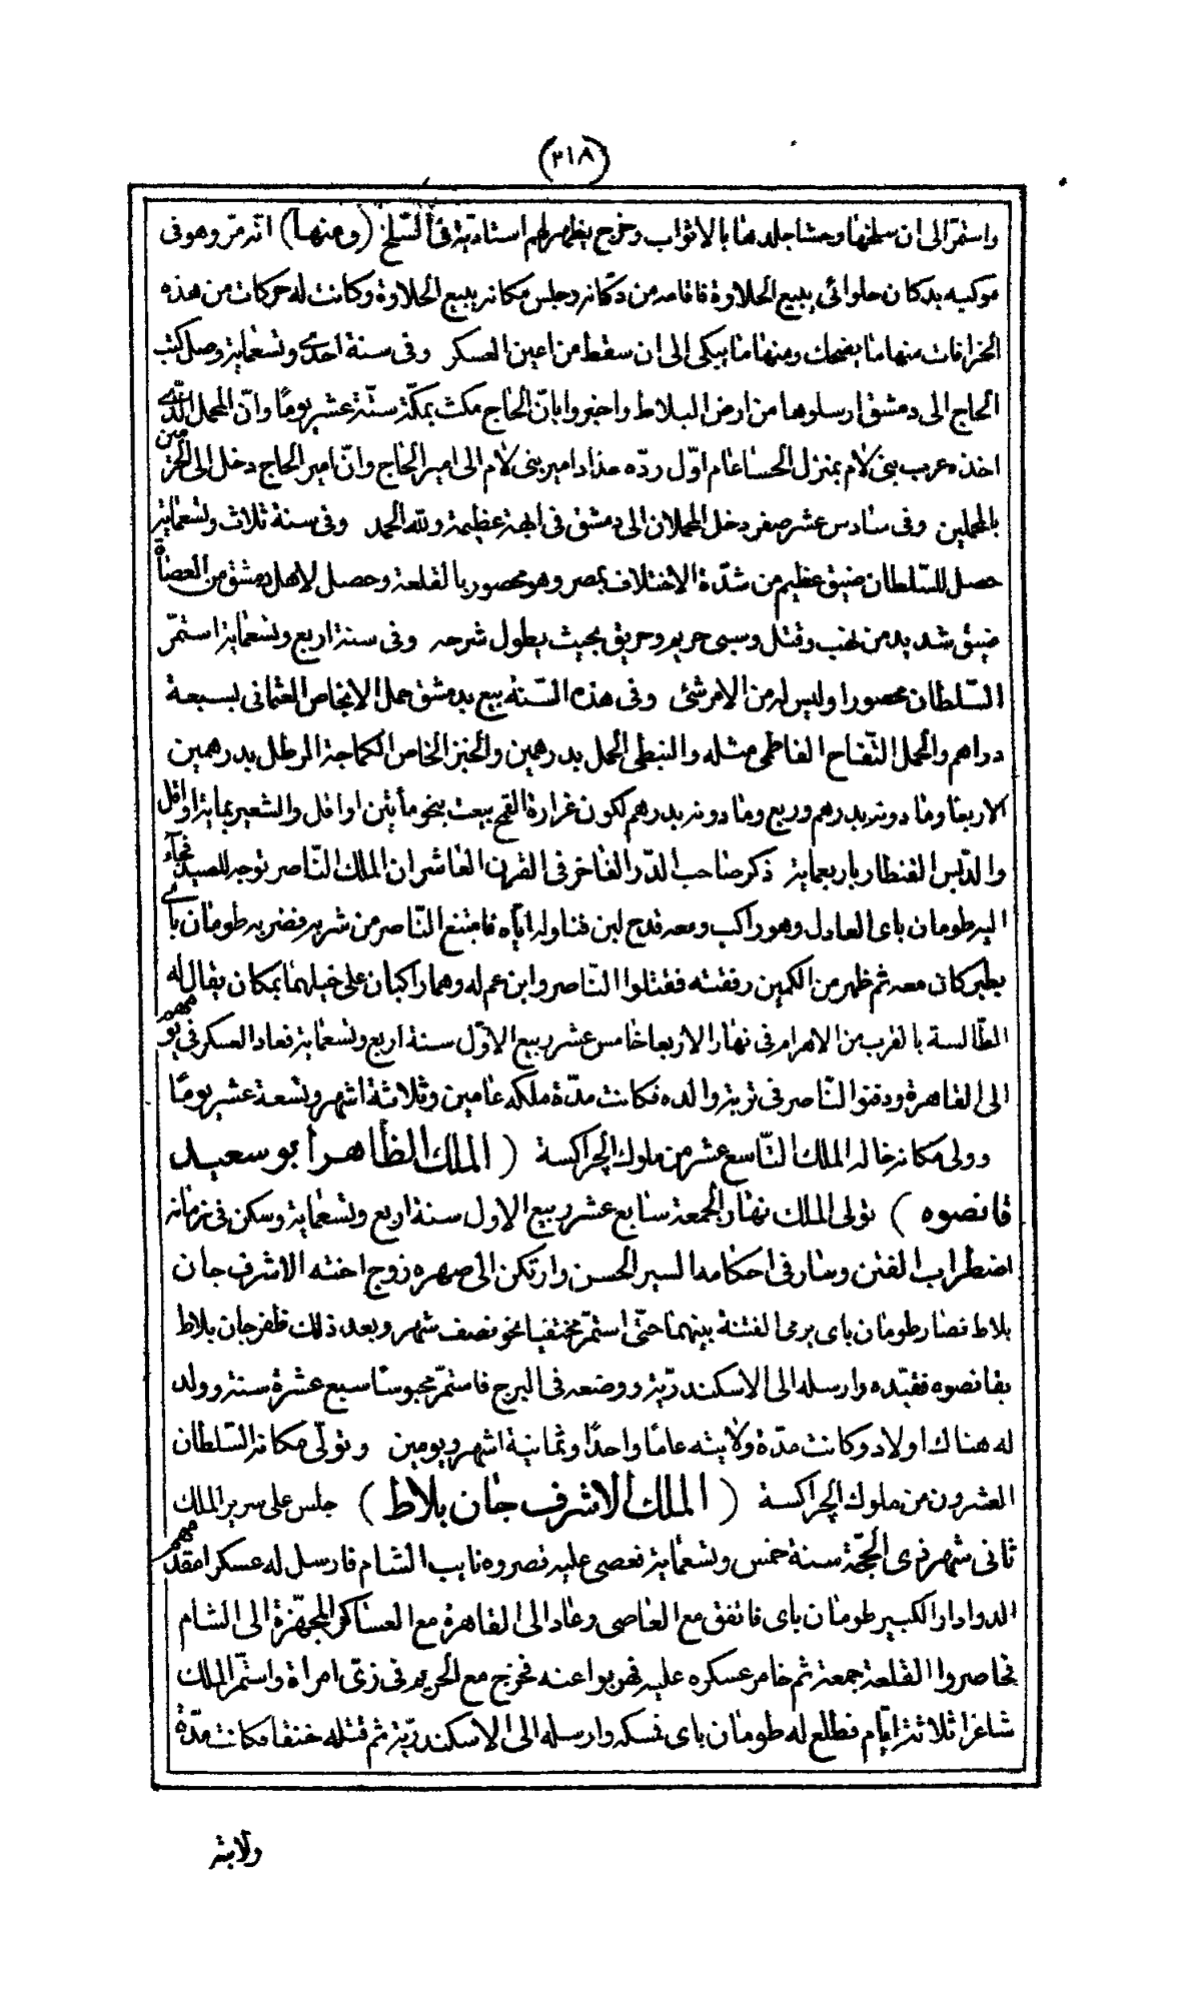 (٢١٨)
واستمر الى ان سلخها وحشا جلدها بالاثواب وخرج يظهر لهم استاديّة فى السّلخ (ومنها) انّه مرّ وهو فى
موكبه بدكان حلوائى يبيع الحلاوة فاقامه من دكّانه وجلس مكانه يبيع الحلاوة وكانت له حركات من هذه
الخرافات منها ما يضحك ومنها ما يبكى الى ان سقط من اعين العسكر وفى سنة احدى وتسعماية وصل كتب
الحاج الى دمشق ارسلوها من ارض البلاط واخبروا بانّ الحاج مكث بمكّة ستّة عشر يومًا وانّ المحمل الّذى
اخذه عرب بنى لام بمنزل الحسا عام اوّل ردّه هذا امير بنى لام الى امير الحاج وانّ امير الحاج دخل الى الحرمين
بالمحملين وفى سادس عشر صفر دخل المحملان الى دمشق فى ابهة عظيمة ولله الحمد وفى سنة ثلاث وتسعماية
حصل للسّلطان ضيق عظيم من شدّة الاختلاف بمصر وهو محصور بالقلعة وحصل لاهل دمشق من العصاة
ضيق شديد من نهب وقتل وسبى حريم وحريق بحيث يطول شرحه وفى سنة اربع وتسعماية استمرّ
السّلطان محصورا وليس له من الامر شئ وفى هذه السّنة بيع بدمشق حمل الانجاص العثمانى بسبعة
دراهم والحمل التّفاح الفاطمى مثله والنبطى الحمل بدرهمين والخبز الخاص الكماجة الرطل بدرهمين
الا ربعا وما دونه بدرهم وربع وما دونه بدرهم لكون غرارة القمح بيعت بنحو مأيتين او اقل والشعير بماية او اقل
والدّبس القنطار باربعماية ذكر صاحب الدّر الفاخر فى القرن العاشر ان الملك النّاصر توجه للصيد فجآء
اليه طومان باى العادل وهو راكب ومعه قدح لبن فناوله ايّاه فامتنع النّاصر من شربه فضربه طومان باى
بطبر كان معه ثم ظهر من الكمين رفقته فقتلوا النّاصر وابن عم له وهما راكبان على خيلهما بمكان يقال له
الطّالسة بالقرب من الاهرام فى نهار الاربعا خامس عشر ربيع الاوّل سنة اربع وتسعماية فعاد العسكر فى يومهم
الى القاهرة ودفنوا النّاصر فى تربة والده فكانت مدّة ملكه عامين وثلاثة اشهر وتسعة عشر يومًا
وولى مكانه خاله الملك التّاسع عشر من ملوك الچراكسة (الملك الظاهر أبو سعيد
قانصوه) تولى الملك نهار الجمعة سابع عشر ربيع الاول سنة اربع وتسعماية وسكن فى زمانه
اضطراب الفتن وسار فى احكامه السير الحسن وارتكن الى صهره زوج اخته الاشرف جان
بلاط فصار طومان باى يرمى الفتنة بينهما حتّى استمرّ مختفيا نحو نصف شهر وبعد ذلك ظفر جان بلاط
بقانصوه فقيّده وارسله الى الاسكندريّة ووضعه فى البرج فاستمرّ محبوسًا سبع عشرة سنة وولد
له هناك اولاد وكانت مدّة ولايته عامًا واحدًا وثمانية اشهر ويومين وتولّى مكانه السّلطان
العشرون من ملوك الچراكسة (الملك الاشرف جان بلاط) جلس على سرير الملك
ثانى شهر ذى الحجّة سنة خمس وتسعماية فعصى عليه قصروه نايب الشام فارسل له عسكرا مقدّمهم
الدوادار الكبير طومان باى فاتفق مع العاصى وعاد الى القاهرة مع العساكر المجهّزة الى الشام
فحاصروا القلعة جمعة ثم خامر عسكره عليه فهربوا عنه فخرج مع الحريم فى زىّ امراة واستمرّ الملك
شاغرا ثلاثة ايّام فطلع له طومان باى فمسكه وارسله الى الاسكندريّة ثم قتله خنقا فكانت مدّة
ولايته